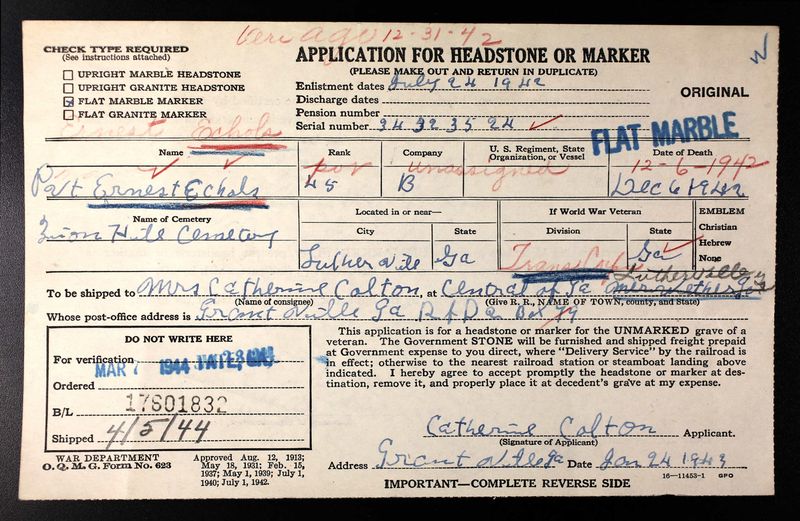 Veri Ago 12-31-42
CHECK TYPE REQUIRED
(See instructions attached)
UPRIGHT MARBLE HEADSTONE
UPRIGHT GRANITE HEADSTONE
FLAT MARBLE MARKER
FLAT GRANITE MARKER
APPLICATION FOR HEADSTONE OR MARKER
(PLEASE MAKE OUT AND RETURN IN DUPLICATE)
Enlistment dates July 24 1942
Discharge dates
Pension number
Serial number 34 32 35 24
ORIGINAL
FLAT MARBLE
Ernest Echols
Name Rank Company U. S. Regiment, State Organization, or Vessel Date of Death
Pvt Unassigned 12-6-1942
Pvt Ernest Echols B Dec 6 1942
Name of Cemetery Located in or near— If World War Veteran EMBLEM
City State Division State Christian
Hebrew
None
Zion Hill Cemetery Luther Ville Ga Trans Corps Ga
Luthersville
To be shipped to Mrs Catherine Colton, at Central of Ga Meriwether
(Name of consignee) (Give R. R., NAME OF TOWN, county, and State)
Whose post-office address is Grant Ville Ga R F D Box 79
DO NOT WRITE HERE
For verification MAR 7 1944
Ordered
B/L 17801832
Shipped 4/5/44
This application is for a headstone or marker for the UNMARKED grave of a
veteran. The Government STONE will be furnished and shipped freight prepaid
at Government expense to you direct, where "Delivery Service" by the railroad is
in effect; otherwise to the nearest railroad station or steamboat landing above
indicated. I hereby agree to accept promptly the headstone or marker at des-
tination, remove it, and properly place it at decedent's grave at my expense.
Catherine Colton Applicant.
(Signature of Applicant)
Address Grant Ville Ga Date Jan 24 1943
WAR DEPARTMENT
O. Q. M. G. Form No. 623
Approved Aug. 12, 1913;
May 18, 1931; Feb. 15,
1937; May 1, 1939; July 1,
1940; July 1, 1942.
IMPORTANT—COMPLETE REVERSE SIDE
16—11453-1 GPO